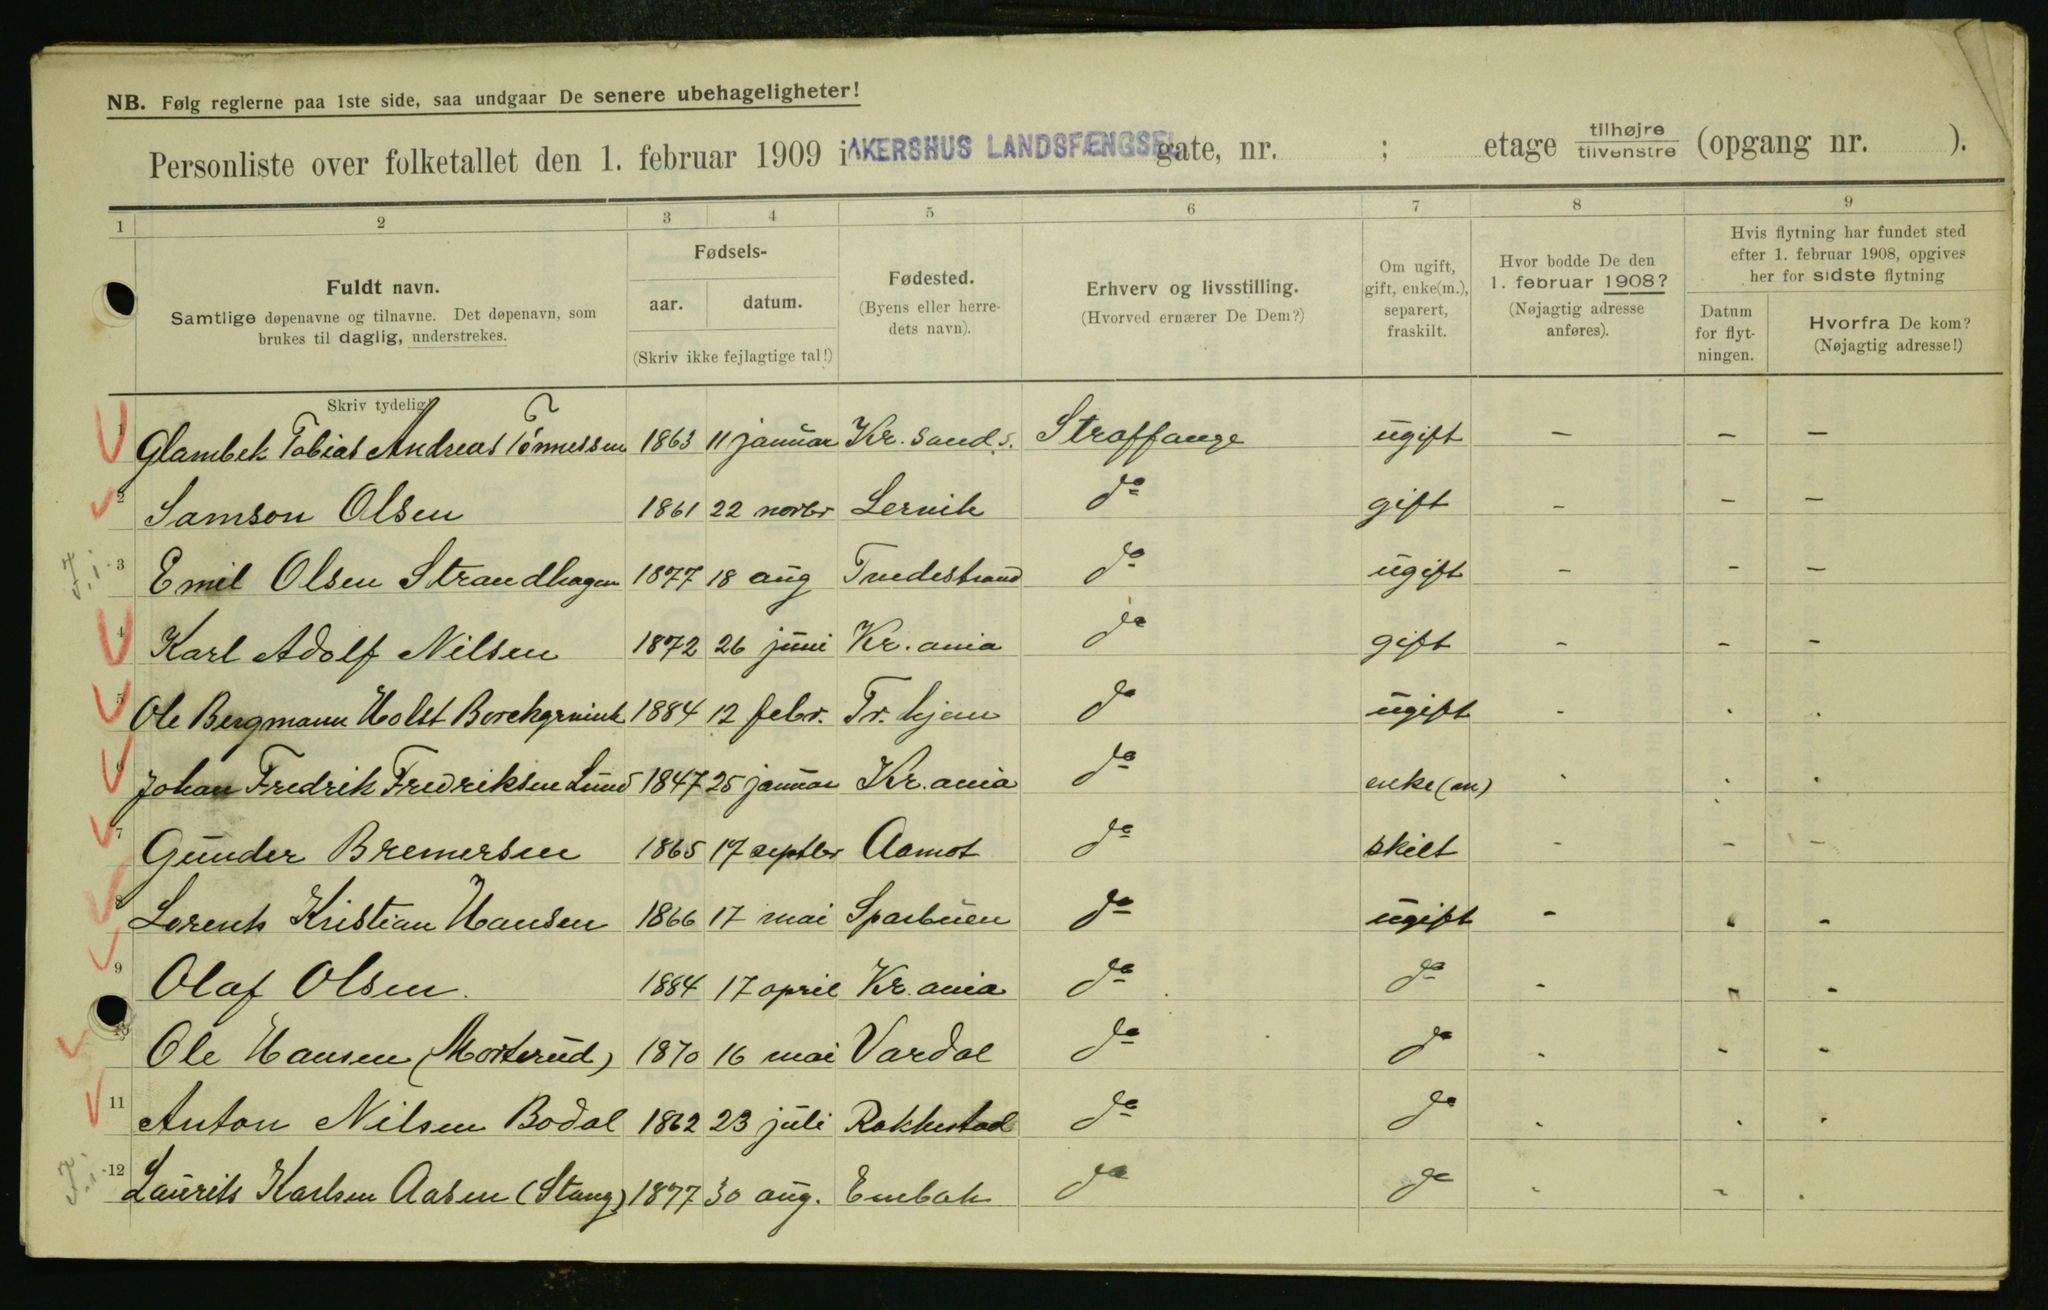 NB. Følg reglerne paa 1ste side, saa undgaar De senere ubehageligheter!
Personliste over folketallet den 1. februar 1909 i AKERSHUS LANDSFÆNGSEL gate, nr. ; etage tilhøjre tilvenstre (opgang nr. ).
1 2 3 4 5 6 7 8 9
Fuldt navn.
Samtlige døpenavne og tilnavne. Det døpenavn, som
brukes til daglig, understrekes.
Fødsels-
aar. datum.
(Skriv ikke fejlagtige tal!)
Fødested.
(Byens eller herre-
dets navn).
Erhverv og livsstilling.
(Hvorved ernærer De Dem?)
Om ugift,
gift, enke(m.),
separert,
fraskilt.
Hvor bodde De den
1. februar 1908?
(Nøjagtig adresse
anføres).
Hvis flytning har fundet sted
efter 1. februar 1908, opgives
her for sidste flytning
Datum
for flyt-
ningen.
Hvorfra De kom?
(Nøjagtig adresse!)
Skriv tydelig!
1 Glambek Tobias Andreas Tönnessen 1863 11 januar Kr. sand s. Straffange ugift – – –
2 Samson Olsen 1861 22 novbr Lervik do gift – – –
3 Emil Olsen Strandhagen 1877 18 aug Tvedestrand do ugift – – –
4 Karl Adolf Nilsen 1872 26 juni Kr. ania do gift – – –
5 Ole Bergmann Holst Borchgrevink 1884 12 febr. Tr. hjem do ugift - - -
6 Johan Fredrik Fredriksen Lund 1847 25 januar Kr. ania do enke(m) - - -
7 Gunder Bremersen 1865 17 septbr Aamot do skilt - - -
8 Lorents Kristian Hansen 1866 17 mai Sparbuen do ugift - - -
9 Olaf Olsen. 1884 17 april Kr. ania do do - - -
10 Ole Hansen (Morterud) 1870 16 mai Vardal do do - - -
11 Anton Nilsen Bodal 1862 23 juli Rakkestad do do - - -
12 Laurits Karlsen Aasen (Stang) 1877 30 aug. Enebak do do - - -